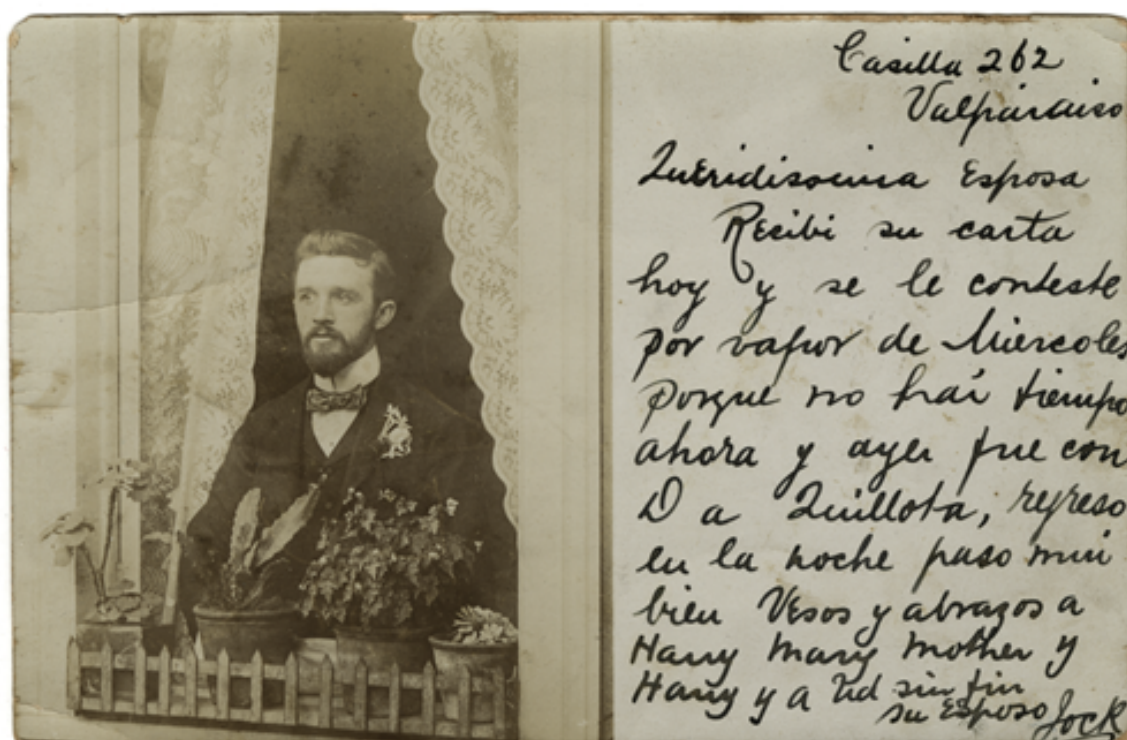 Casilla 262
Valparaiso
Queridissima Esposa
Recibi su carta
hoy y se le conteste
por vapor de Miercoles
porque no hai tiempo
ahora y ayer fue con
D a Quillota, regreso
en la noche paso mui
bien Vesos y abrazos a
Harry Mary Mother y
Harry y a Ud sin fin
su Esposo Jock